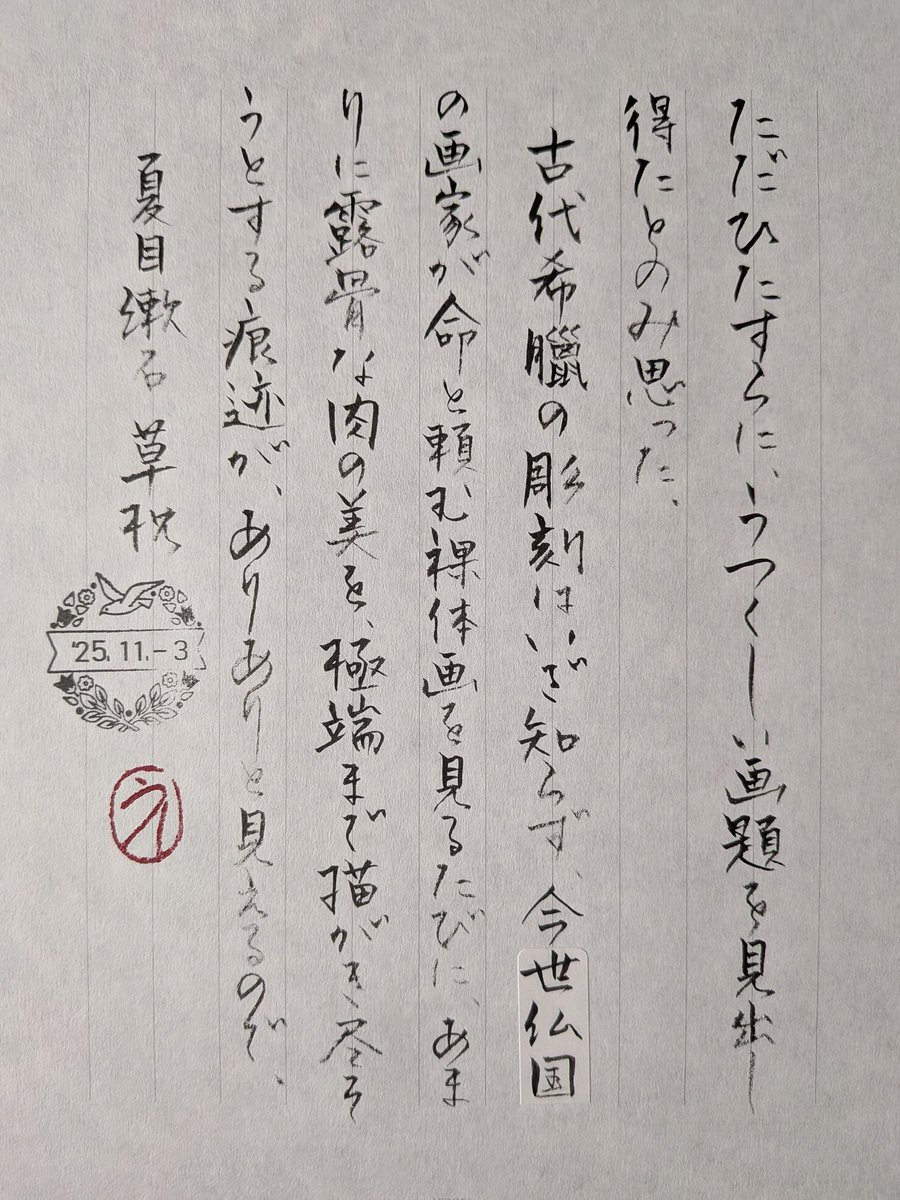 ただひたすらに、うつくしい画題を見出し
得たとのみ思った、
古代希臘の彫刻はいざ知らず、今世仏国
の画家が命と頼む裸体画を見るたびに、あま
りに露骨な肉の美を、極端まで描がき尽そ
うとする痕迹が、ありありと見えるので、
夏目漱石 草枕
'25.11.-3